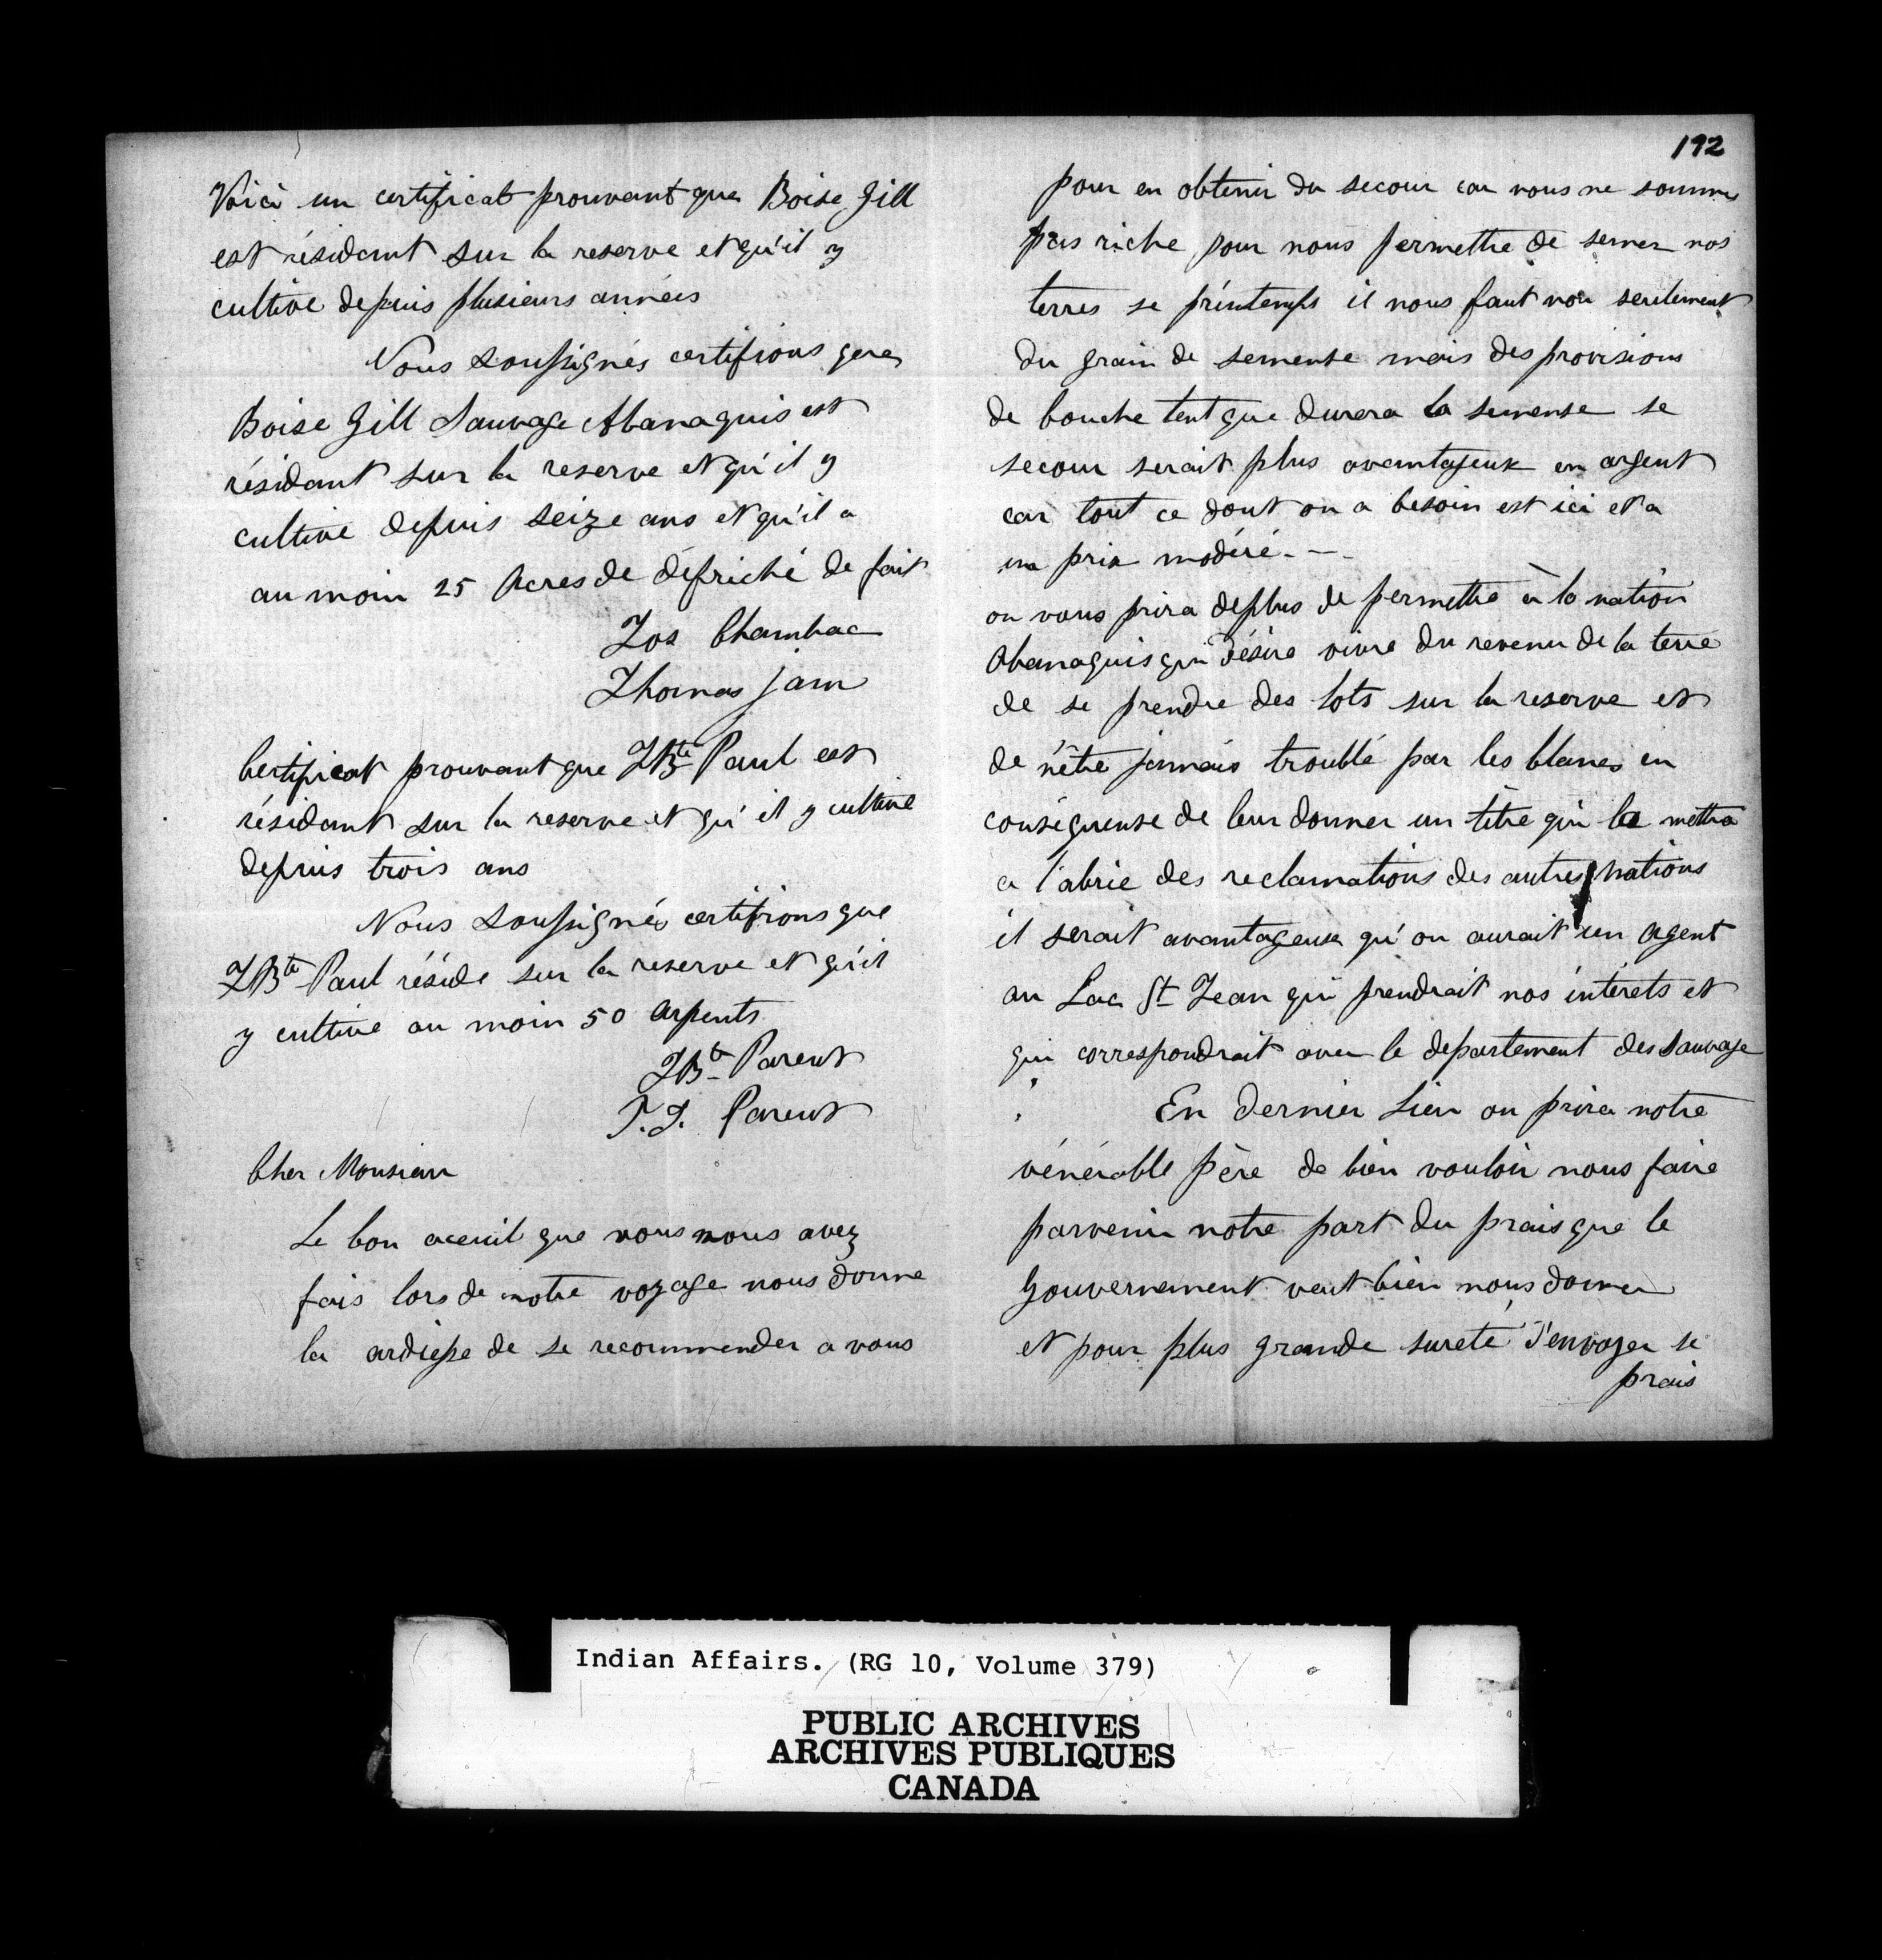 Voici un certificat prouvant que Boise Gill
est résidant sur la reserve et qu'il y
cultive depuis plusieurs années
Nous soussignés certifions que
Boise Gill Sauvage Abanaquis est
résidant sur la reserve et qu'il y
cultive depuis seize ans et qu'il a
au moin 25 Acres de défriché de fait
Jos Chambac
Thomas Jam
Certificat prouvant que JBte Paul est
résidant sur la reserve et qu'il y cultive
depuis trois ans
Nous Soussignés certifions que
JBte Paul réside sur la reserve et qu'il
y cultive au moin 50 arpents
JBte Parent
T.J. Parent
Cher Monsieur
Le bon aceuil que vous nous avez
fais lors de notre voyage nous donne
la ardiesse de se recommender a vous
192
pour en obtenir du secour car nous ne somme
pas riche pour nous permettre de semer nos
terres se printemps il nous faut non seulement
du grain de semense mais des provisions
de bouche tent que durera la semense se
secour serait plus avantageux en argent
car tout ce dont on a besoin est ici et a
un prix modéré - —
on vous prira deplus de permettre à la nation
Abanaquis qui désire vivre du revenu de la terre
de se prendre des lots sur la reserve et
de n'être jamais troublé par les blancs en
conséquense de leur donner un titre qui la mettra
a l'abrie des reclamations des autres nations
il serait avantageux qu'on aurait un agent
au Lac St Jean qui prendrait nos intérets et
qui correspondrait avec le departement des Sauvage
En dernier Lieu on prira notre
vénérable père de bien vouloir nous faire
parvenir notre part du prais que le
Gouvernement veut bien nous donner
et pour plus grande sureté d'envoyer se
prais
Indian Affairs. (RG 10, Volume 379)
PUBLIC ARCHIVES
ARCHIVES PUBLIQUES
CANADA